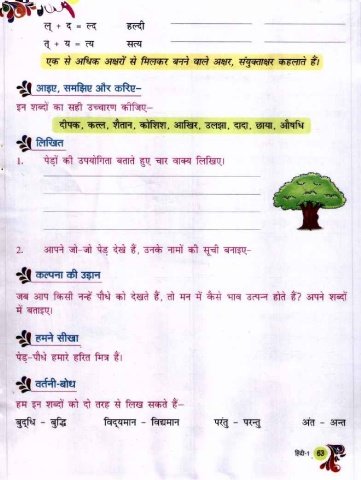 ल् + द = ल्द हल्दी
त् + य = त्य सत्य
एक से अधिक अक्षरों से मिलकर बनने वाले अक्षर, संयुक्ताक्षर कहलाते हैं।
आइए, समझिए और करिए–
इन शब्दों का सही उच्चारण कीजिए–
दीपक, कत्ल, शैतान, कोशिश, आखिर, उलझा, दादा, छाया, औषधि
लिखित
1. पेड़ों की उपयोगिता बताते हुए चार वाक्य लिखिए।
2. आपने जो-जो पेड़ देखे हैं, उनके नामों की सूची बनाइए–
कल्पना की उड़ान
जब आप किसी नन्हें पौधे को देखते हैं, तो मन में कैसे भाव उत्पन्न होते हैं? अपने शब्दों
में बताइए।
हमने सीखा
पेड़-पौधे हमारे हरित मित्र हैं।
वर्तनी-बोध
हम इन शब्दों को दो तरह से लिख सकते हैं–
बुद्‌धि – बुद्धि विद्‌यमान – विद्यमान परंतु – परन्तु अंत – अन्त
हिंदी-1 63